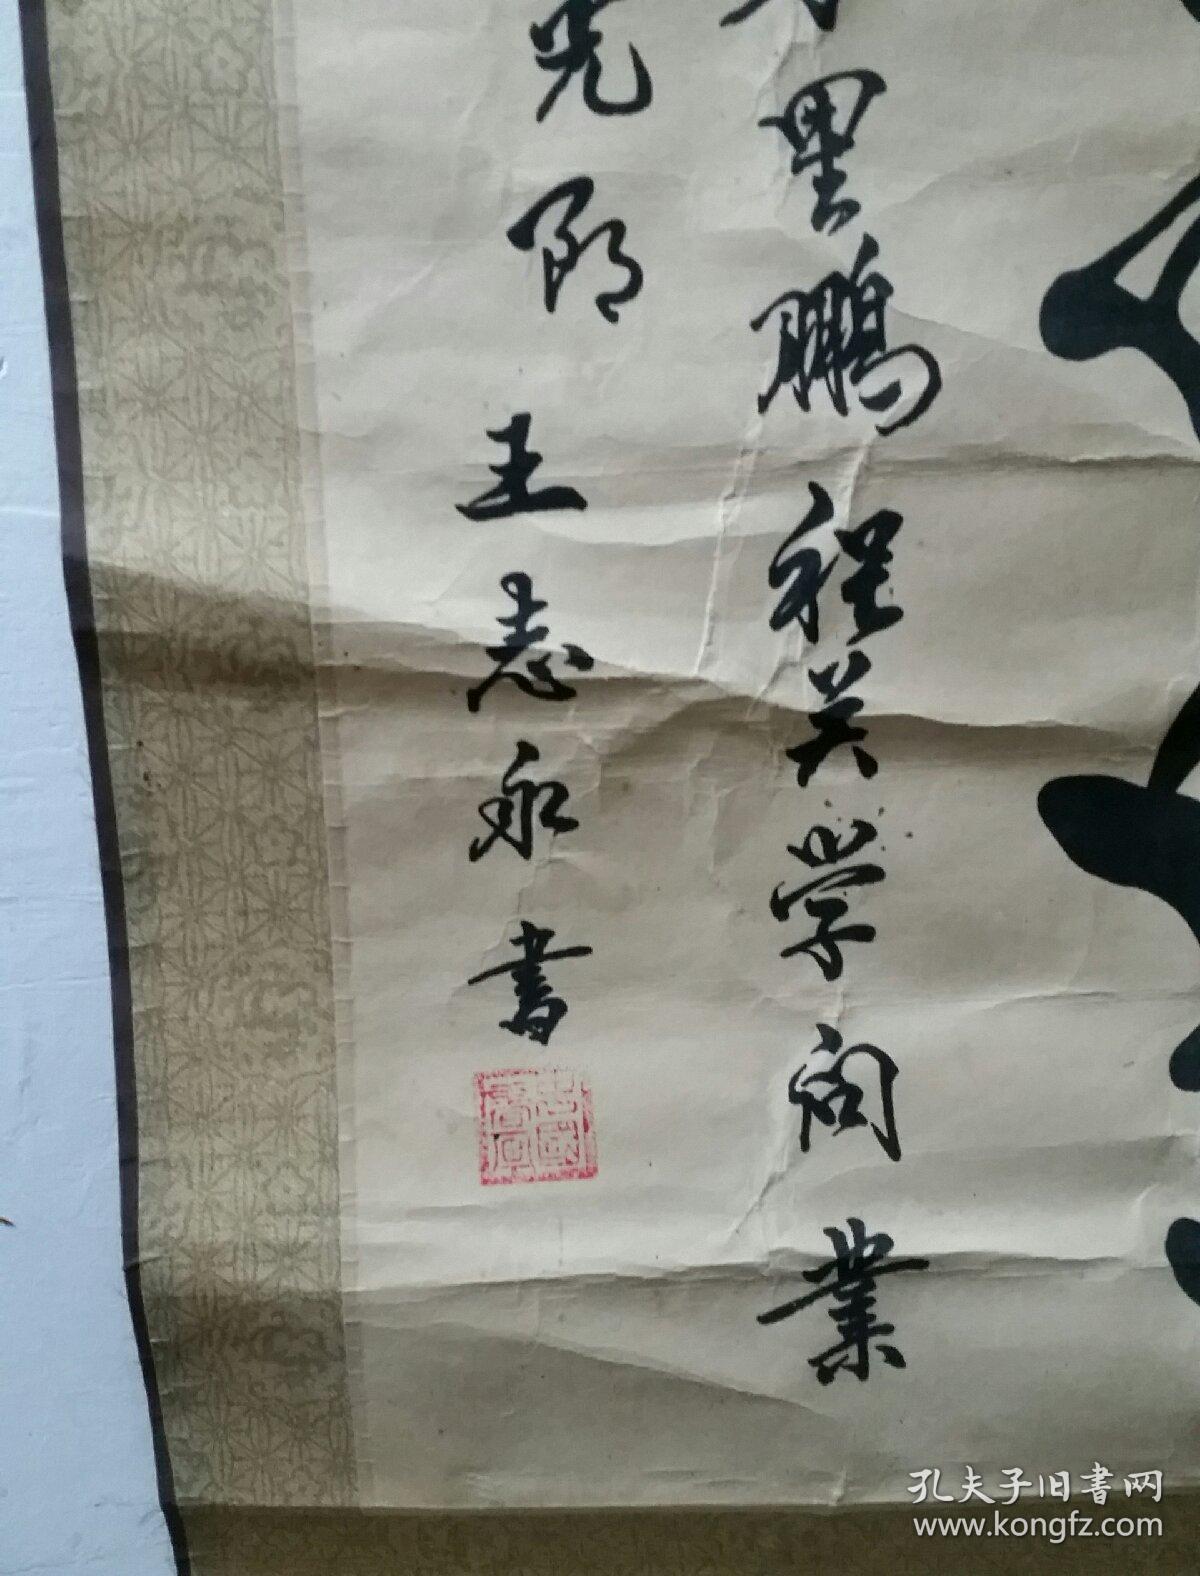 里鹏程关学问業
光朗
王志永書
孔夫子旧書网
www.kongfz.com